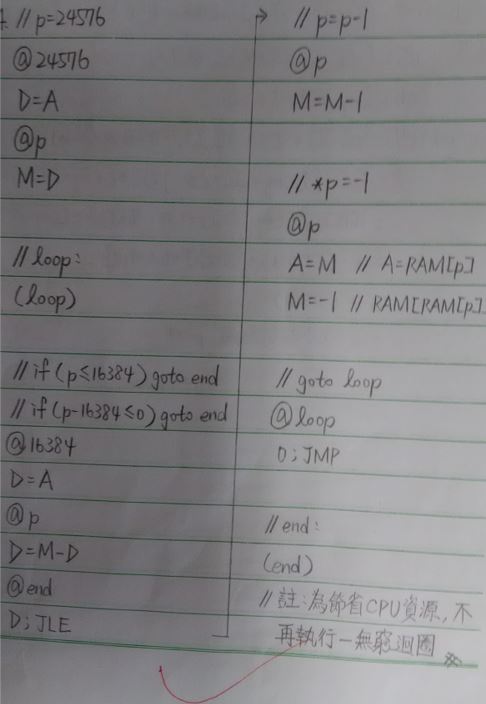 // p=24576
@24576
D=A
@p
M=D
// loop:
(loop)
// if (p≤16384) goto end
// if (p-16384≤0) goto end
@16384
D=A
@p
D=M-D
@end
D;JLE
→ // p=p-1
@p
M=M-1
// *p=-1
@p
A=M // A=RAM[p]
M=-1 // RAM[RAM[p]
// goto loop
@loop
0;JMP
// end:
(end)
// 註:為節省CPU資源,不
再執行一無窮迴圈